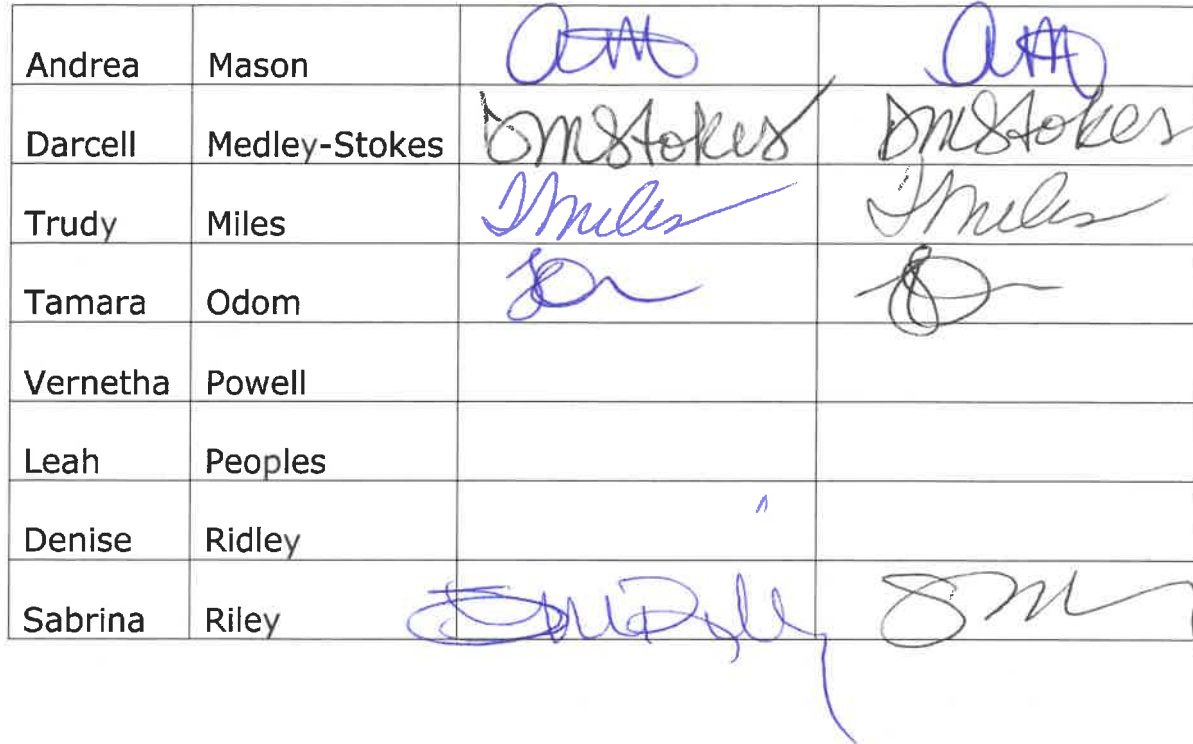 Andrea Mason
Darcell Medley-Stokes DMStokes DMStokes
Trudy Miles TMiles TMiles
Tamara Odom
Vernetha Powell
Leah Peoples
Denise Ridley
Sabrina Riley